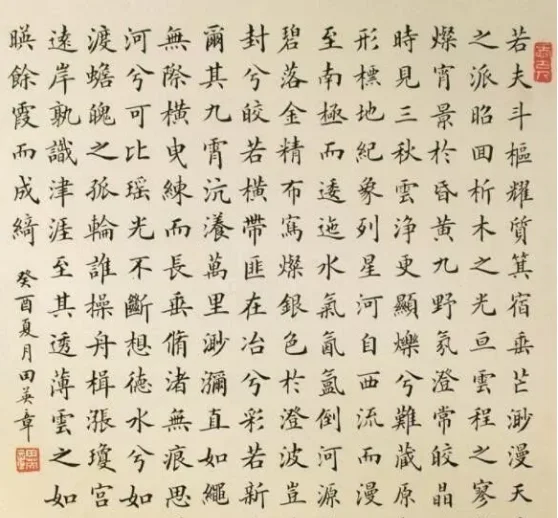 若夫斗樞耀質箕宿垂芒渺漫天
之派昭回析木之光亘雲程之寥
燦宵景於昏黃九野氛澄常皎晶
時見三秋雲淨更顯爍兮難藏原
形標地紀象列星河自西流而漫
至南極而逶迤水氣氤氳倒河源
碧落金精布寫燦銀色於澄波豈
封兮皎若橫帶匪在冶兮彩若新
爾其九霄沆瀁萬里渺瀰直如繩
無際橫曳練而長垂脩渚無痕思
河兮可比瑶光不斷想德水兮如
渡蟾魄之孤輪誰操舟楫漲瓊宮
遠岸孰識津涯至其透薄雲之如
暎餘霞而成綺
癸酉夏月田英章